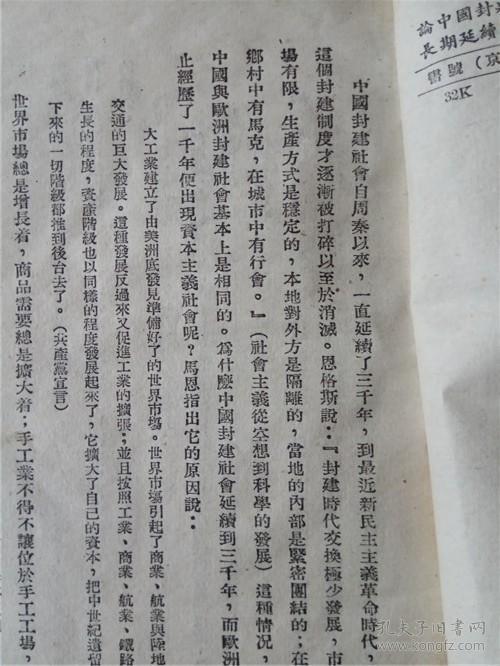 論中國封建
長期延續
書號（京
32K
中國封建社會自周秦以來，一直延續了三千年，到最近新民主主義革命時代
這個封建制度才逐漸被打碎以至於消滅。恩格斯說：『封建時代交換極少發展，市
場有限，生產方式是穩定的，本地對外方是隔離的，當地的內部是緊密團結的；在
鄉村中有馬克，在城市中有行會。』（社會主義從空想到科學的發展）這種情况，
中國與歐洲封建社會基本上是相同的。爲什麽中國封建社會延續到三千年，而歐洲
止經歷了一千年便出現資本主義社會呢？馬恩指出它的原因說：
大工業建立了由美洲底發見準備好了的世界市塲。世界市塲引起了商業、航業與陸地
交通的巨大發展。這種發展反過來又促進工業的擴張；並且按照工業、商業、航業、鐵路
生長的程度，資產階級也以同樣的程度發展起來了，它擴大了自己的資本，把中世紀遺留
下來的一切階級都推到後台去了。（共產黨宣言）
世界市場總是增長着，商品需要總是擴大着；手工業不得不讓位於手工工場，
孔夫子旧书网
www.kongfz.com